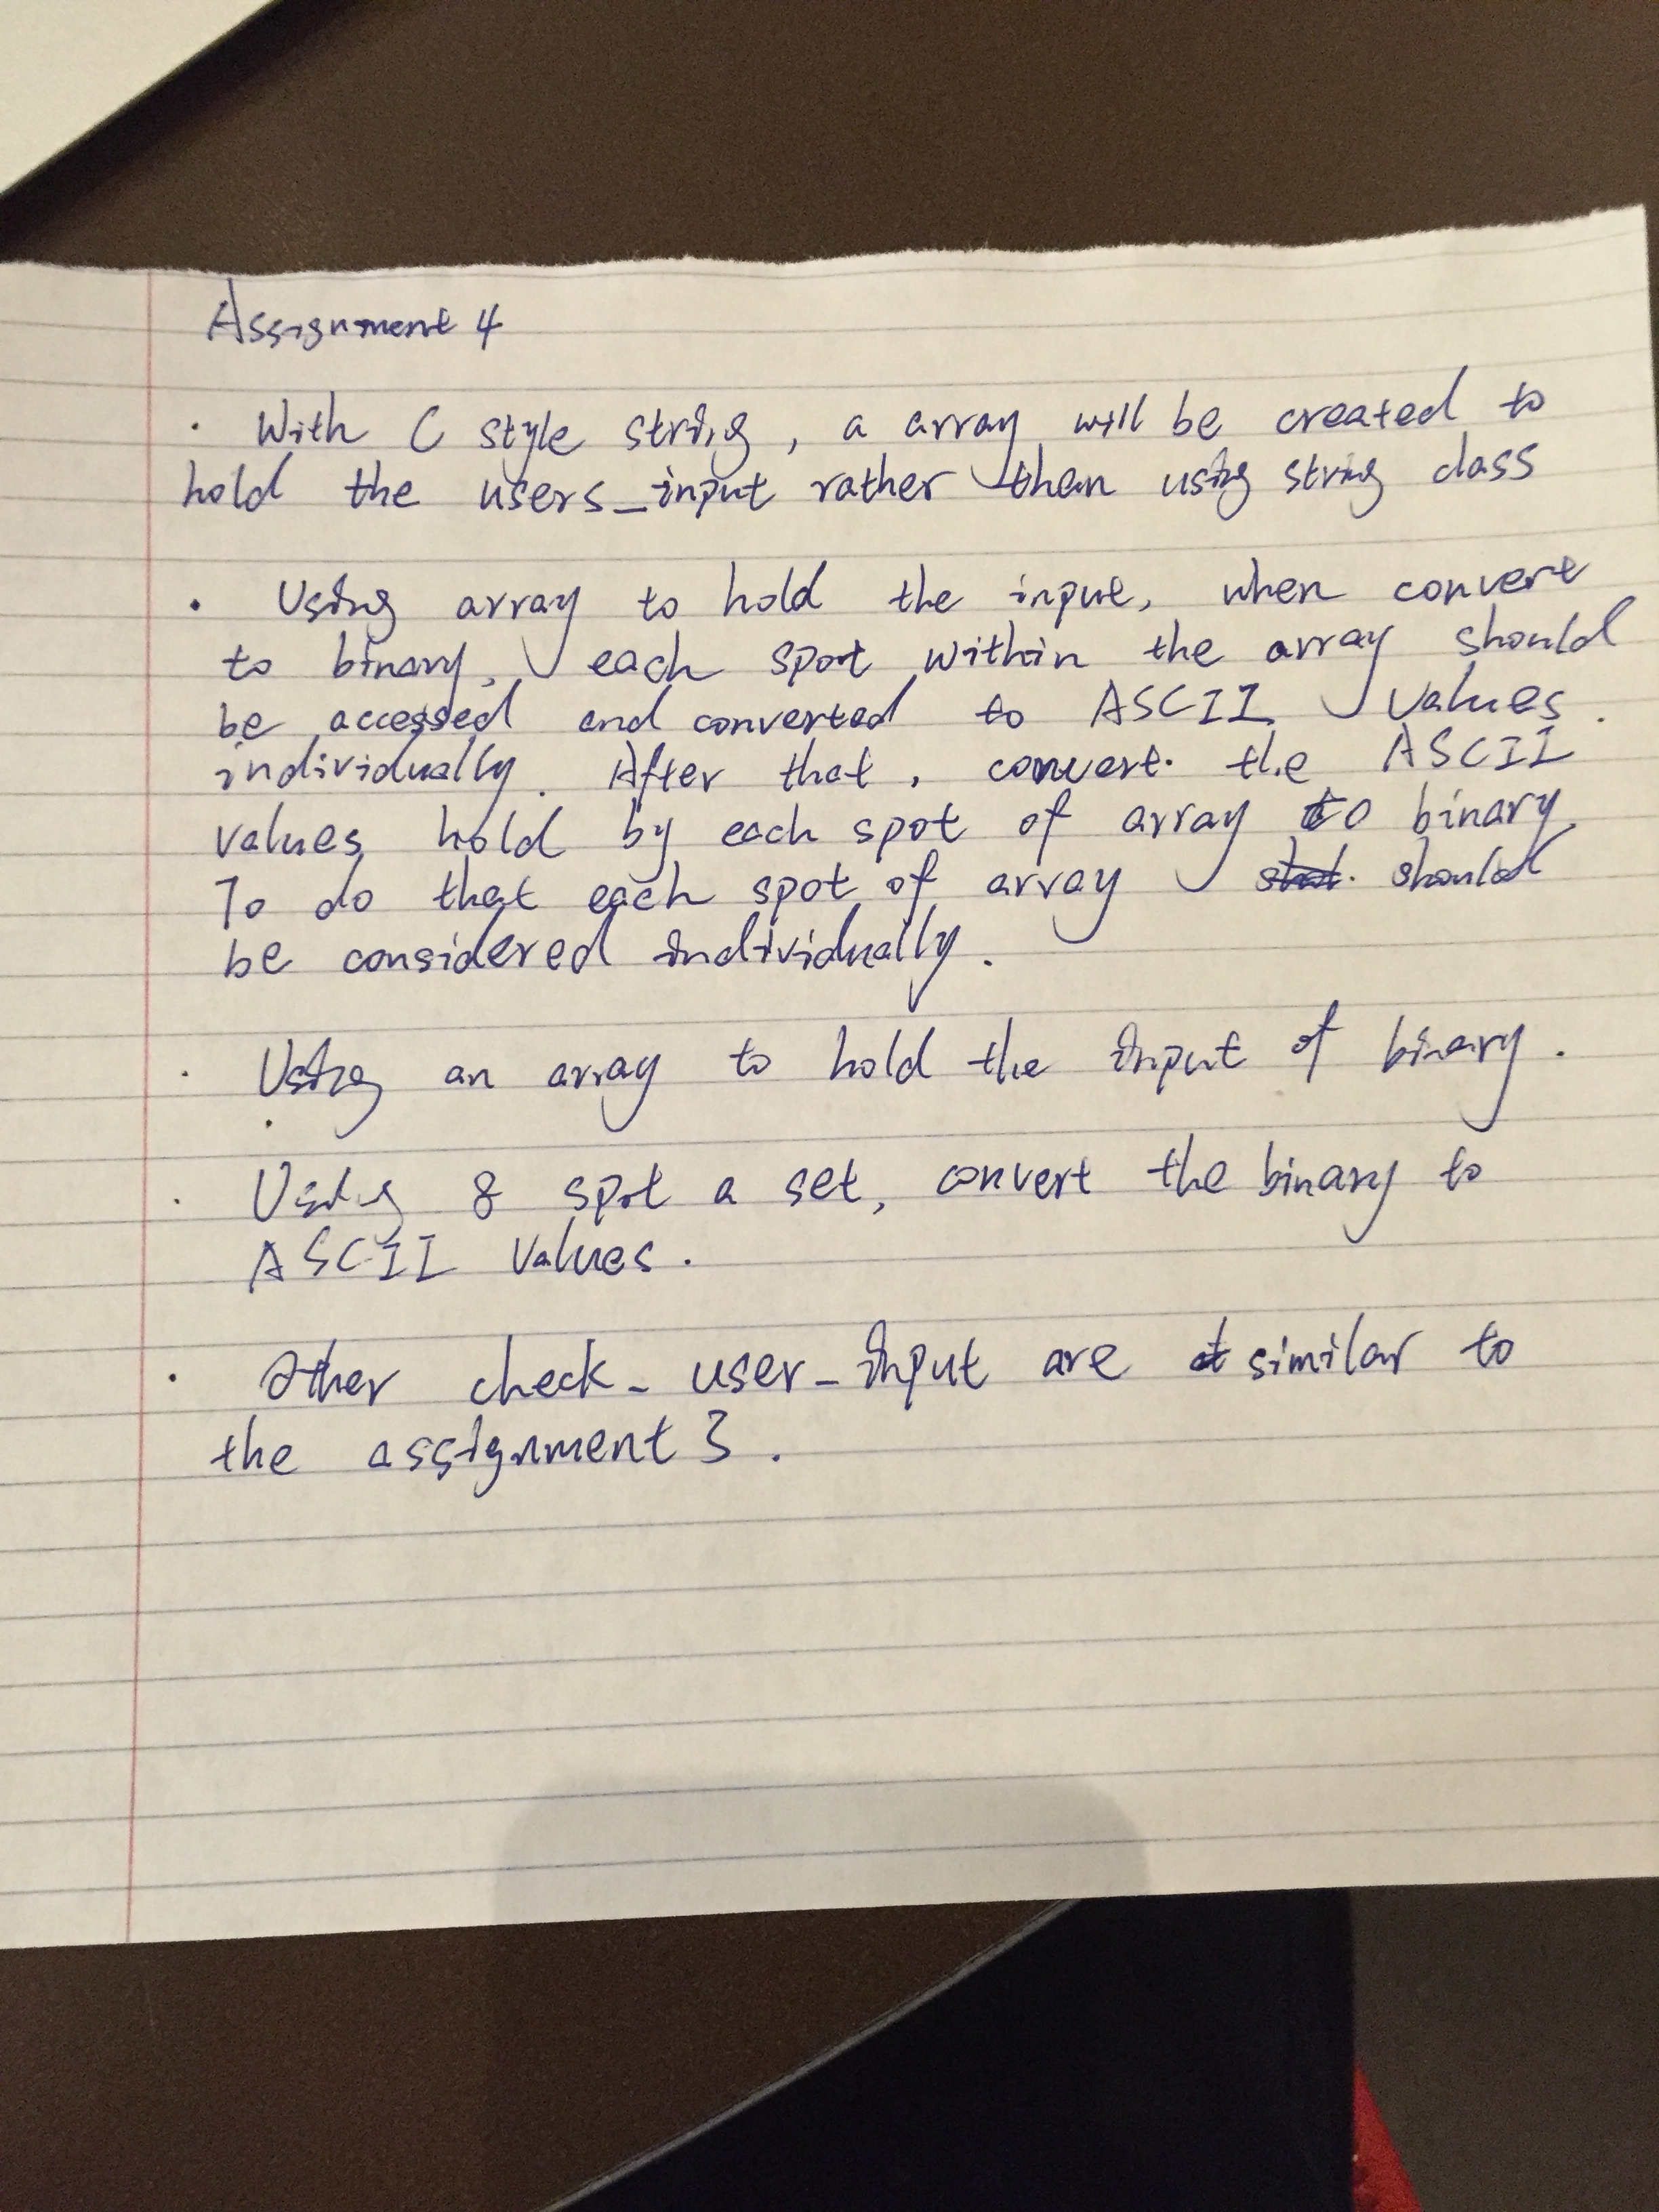 Assignment 4
· With C style string, a array will be created to
hold the users_input rather than using string class
· Using array to hold the input, when convert
to binary, each spot within the array should
be accessed and converted to ASCII values
individually. After that, convert the ASCII
values hold by each spot of array to binary.
To do that each spot of array should
be considered individually.
· Using an array to hold the input of binary.
· Using 8 spot a set, convert the binary to
ASCII values.
· Other check_user_input are similar to
the assignment 3.